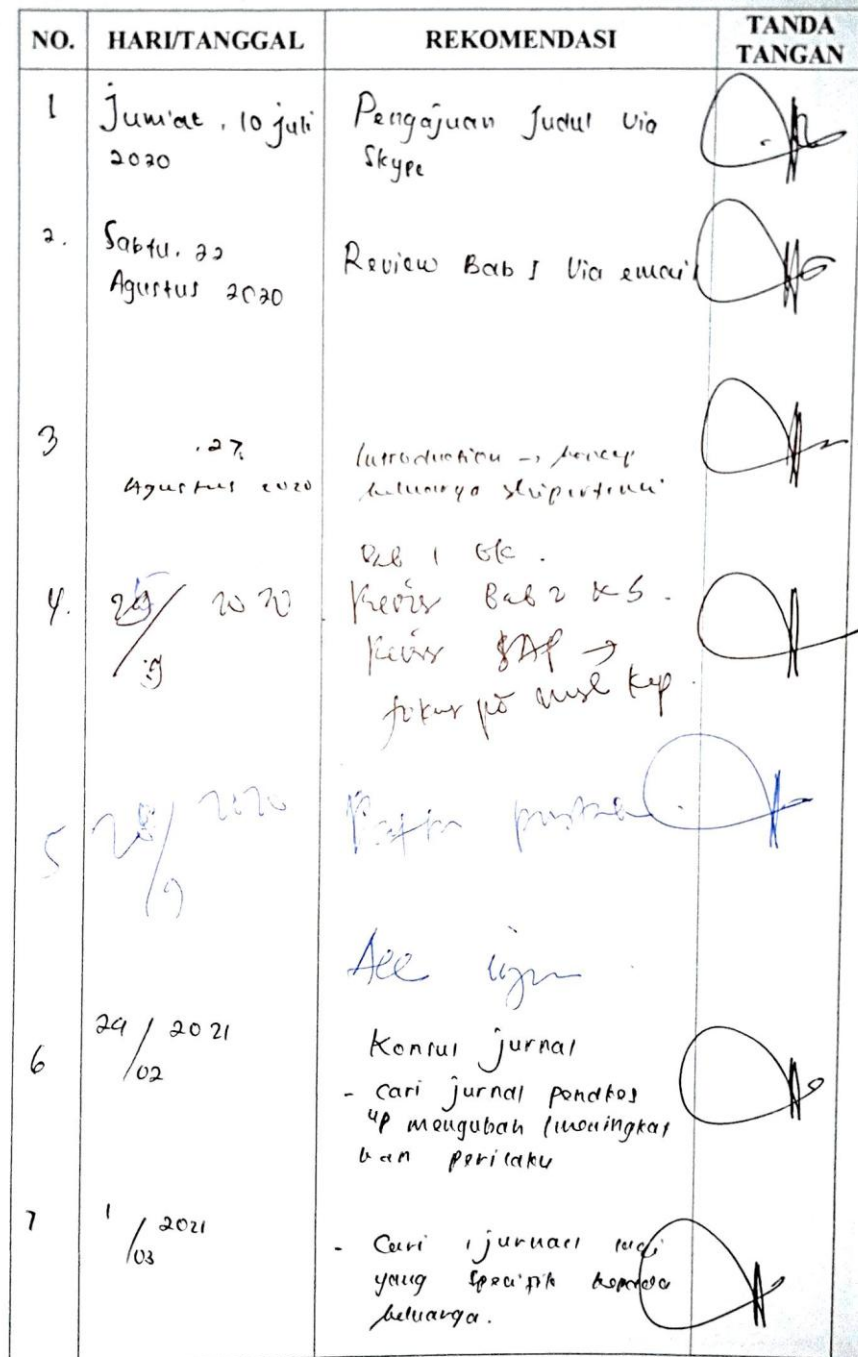 NO. HARI/TANGGAL REKOMENDASI TANDA TANGAN
1 Jum'at, 10 juli Pengajuan Judul Via
2020 Skype
2. Sabtu, 22 Review Bab I Via email
Agustus 2020
3 27 Introduction →
Agustus 2020 keluarga
Bab 1 Ok.
4. /9 2020 Revisi Bab 2 & 5.
Revisi SAP →
fokus Kep.
5 28/9 2020
Acc
6 /02 2021 Konsul jurnal
- cari jurnal pendkes
mengubah (meningkat
kan perilaku
7 1/03 2021 - Cari 1 jurnal lagi
yang spesifik kepada
keluarga.